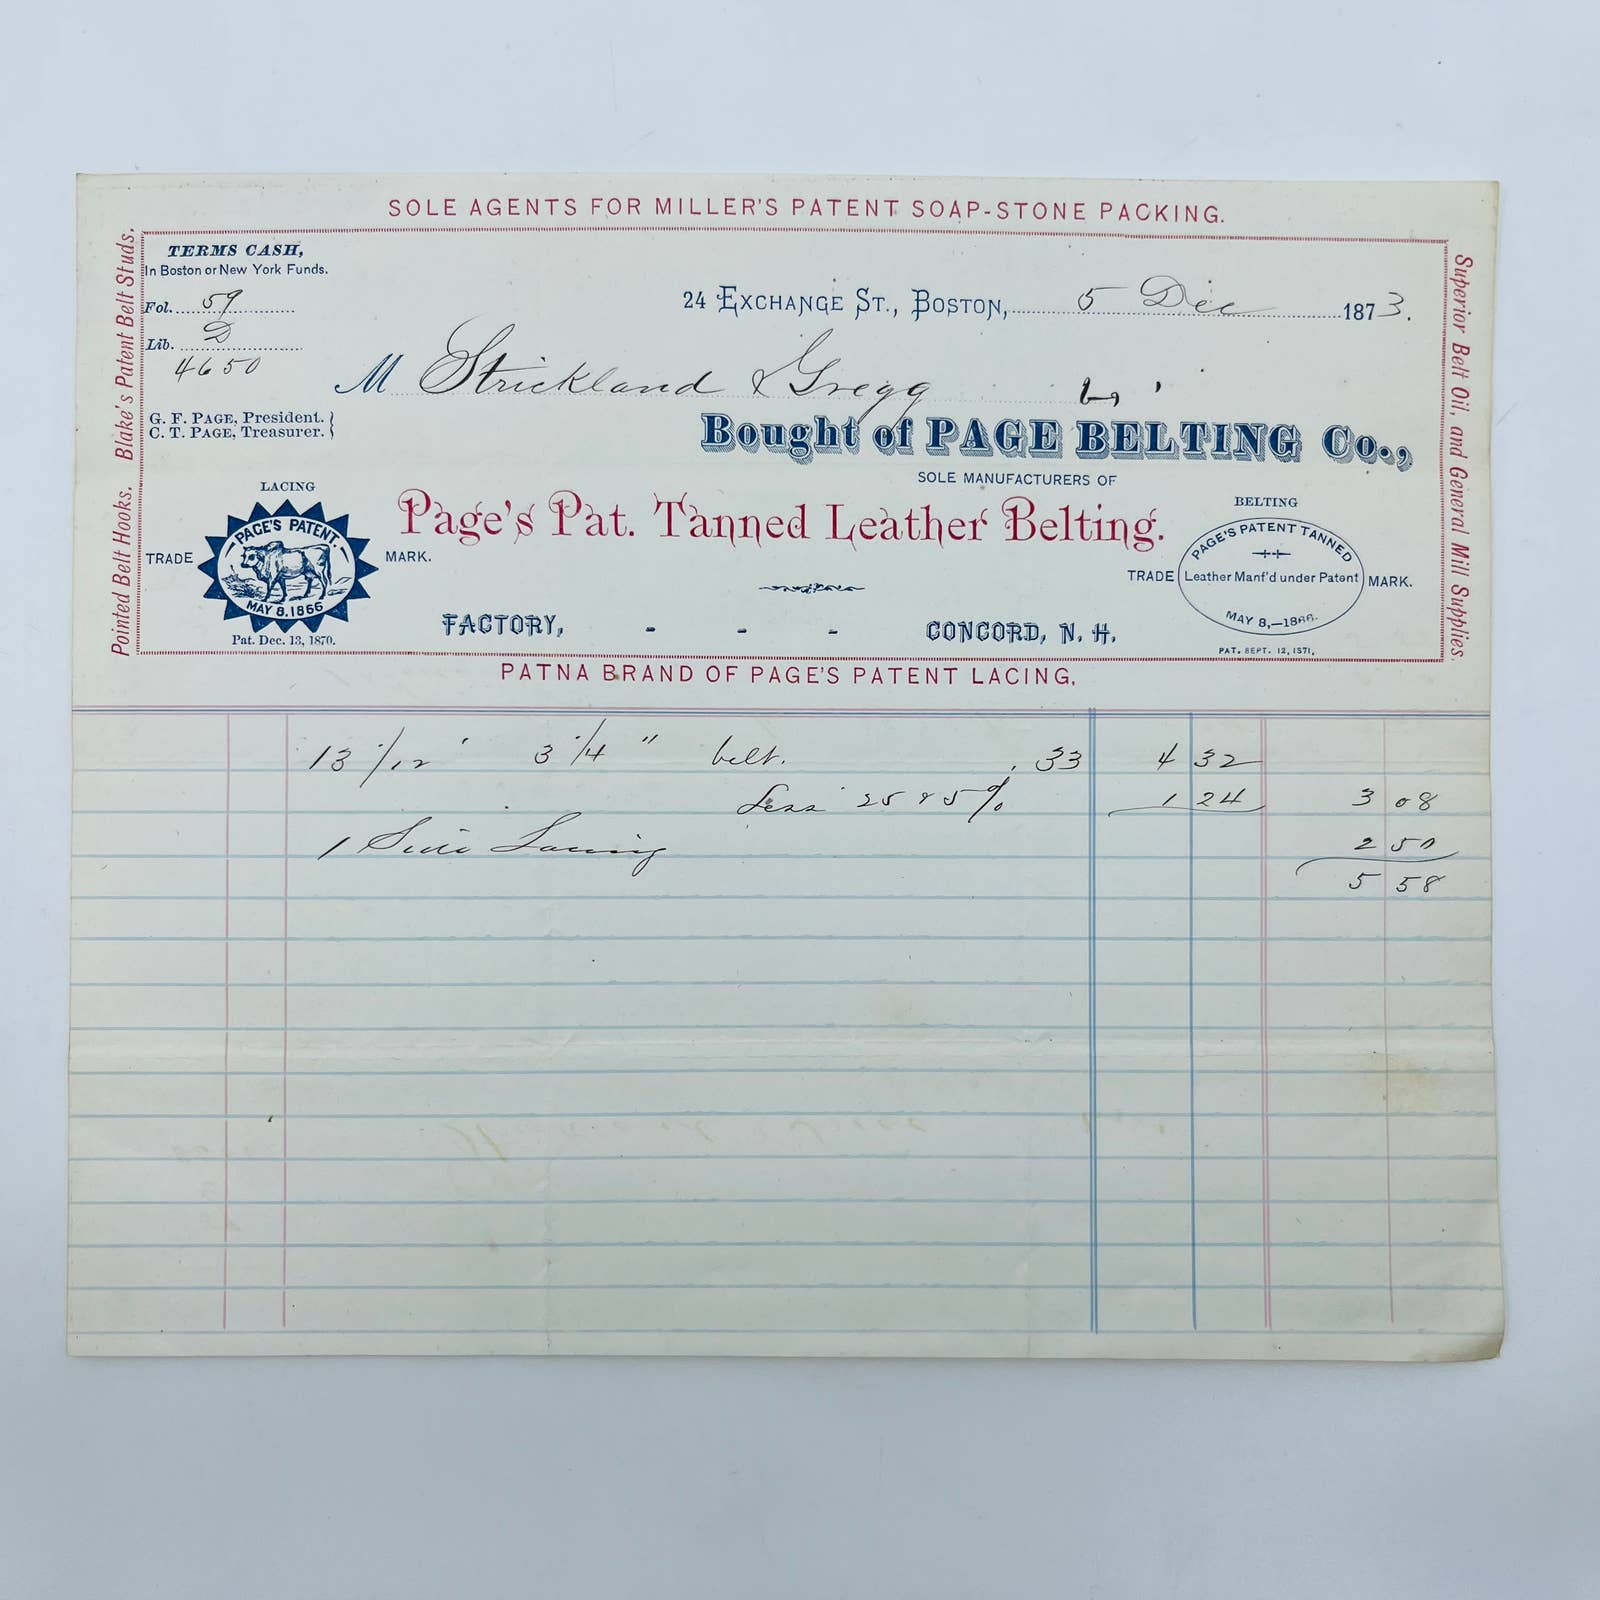 SOLE AGENTS FOR MILLER'S PATENT SOAP-STONE PACKING.
Pointed Belt Hooks. Blake's Patent Belt Studs.
Superior Belt Oil, and General Mill Supplies.
TERMS CASH,
In Boston or New York Funds.
Fol. 59
Lib. D
4650
24 EXCHANGE ST., BOSTON, 5 Dec 1873.
M Strickland & Gregg
G. F. PAGE, President.
C. T. PAGE, Treasurer.
Bought of PAGE BELTING Co.,
SOLE MANUFACTURERS OF
Page's Pat. Tanned Leather Belting.
LACING
TRADE MARK.
PAGE'S PATENT.
MAY 8. 1866
Pat. Dec. 13, 1870.
BELTING
TRADE MARK.
PAGE'S PATENT TANNED
Leather Manf'd under Patent
MAY 8,—1866.
PAT. SEPT. 12, 1871,
FACTORY, - - - CONCORD, N. H.
PATNA BRAND OF PAGE'S PATENT LACING.
13 1/12 ' 3 1/4 " belt. .33 4 32
Less 25 & 5 % 1 24 3 08
1 Side Lacing 2 50
5 58